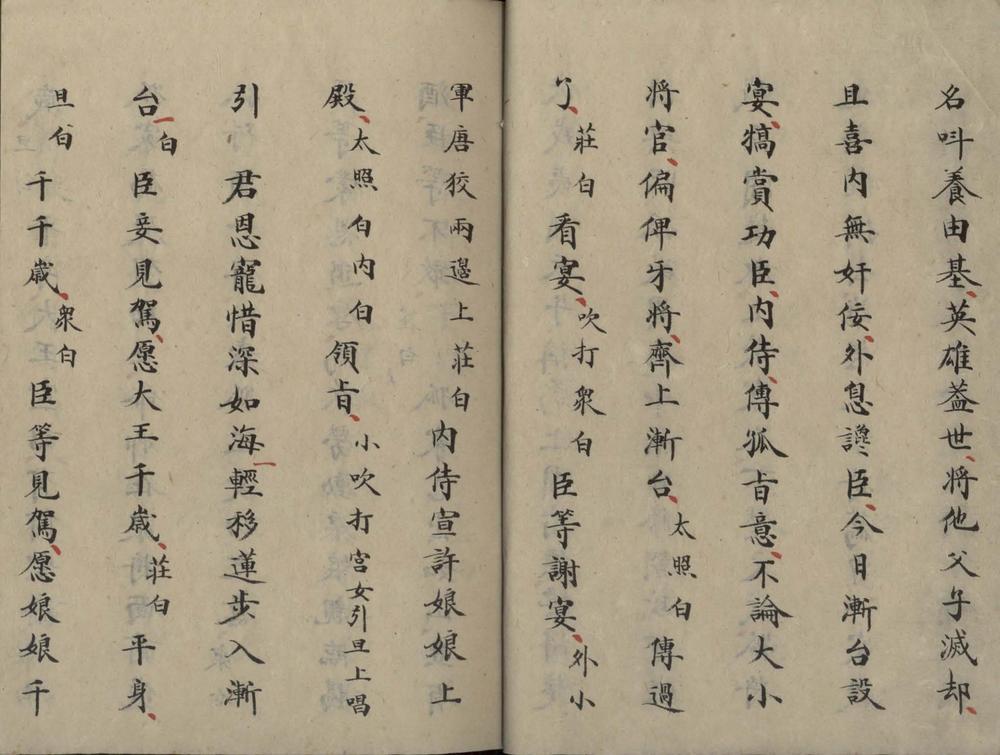 名呌養由基、英雄蓋世、將他父子滅却、
且喜內無奸佞、外息讒臣、今日漸台設
宴、犒賞功臣、內侍、傳孤旨意、不論大小
將官、偏俾牙將、齊上漸台、太照白傳過
了、莊白看宴、吹打衆白臣等謝宴、外小
軍唐狡兩邉上莊白內侍宣許娘娘上
殿、太照白內白領旨、小吹打宮女引旦上唱
引君恩寵惜深如海輕移蓮步入漸
台白臣妾見駕、愿大王千歲、莊白平身、
旦白千千歲、衆白臣等見駕、愿娘娘千